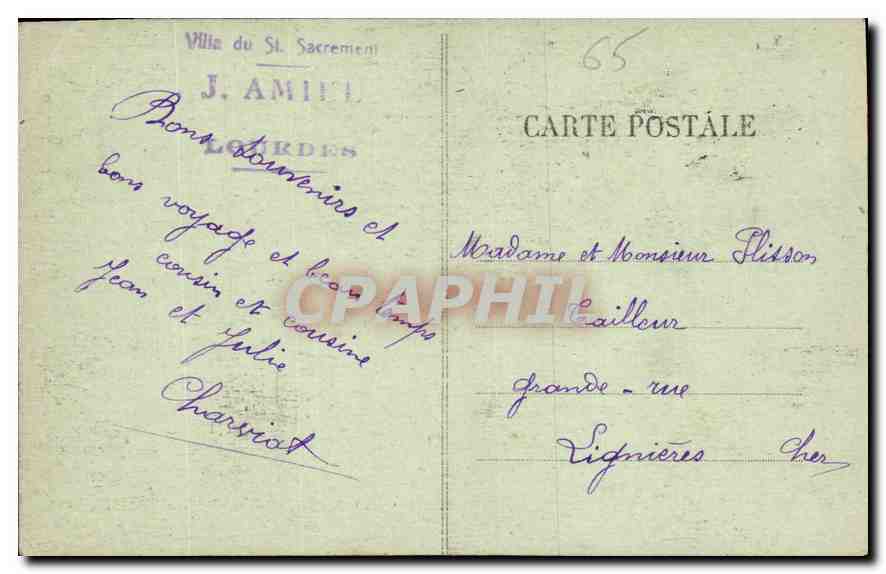 Villa du St. Sacrement
J. AMIEL
LOURDES
Bons souvenirs et
bons voyage et beau temps
cousin et cousine
Jean et Julie
Charviat
65
CARTE POSTALE
Madame et Monsieur Plisson
Tailleur
grande-rue
Lignières Cher
CPAPHIL